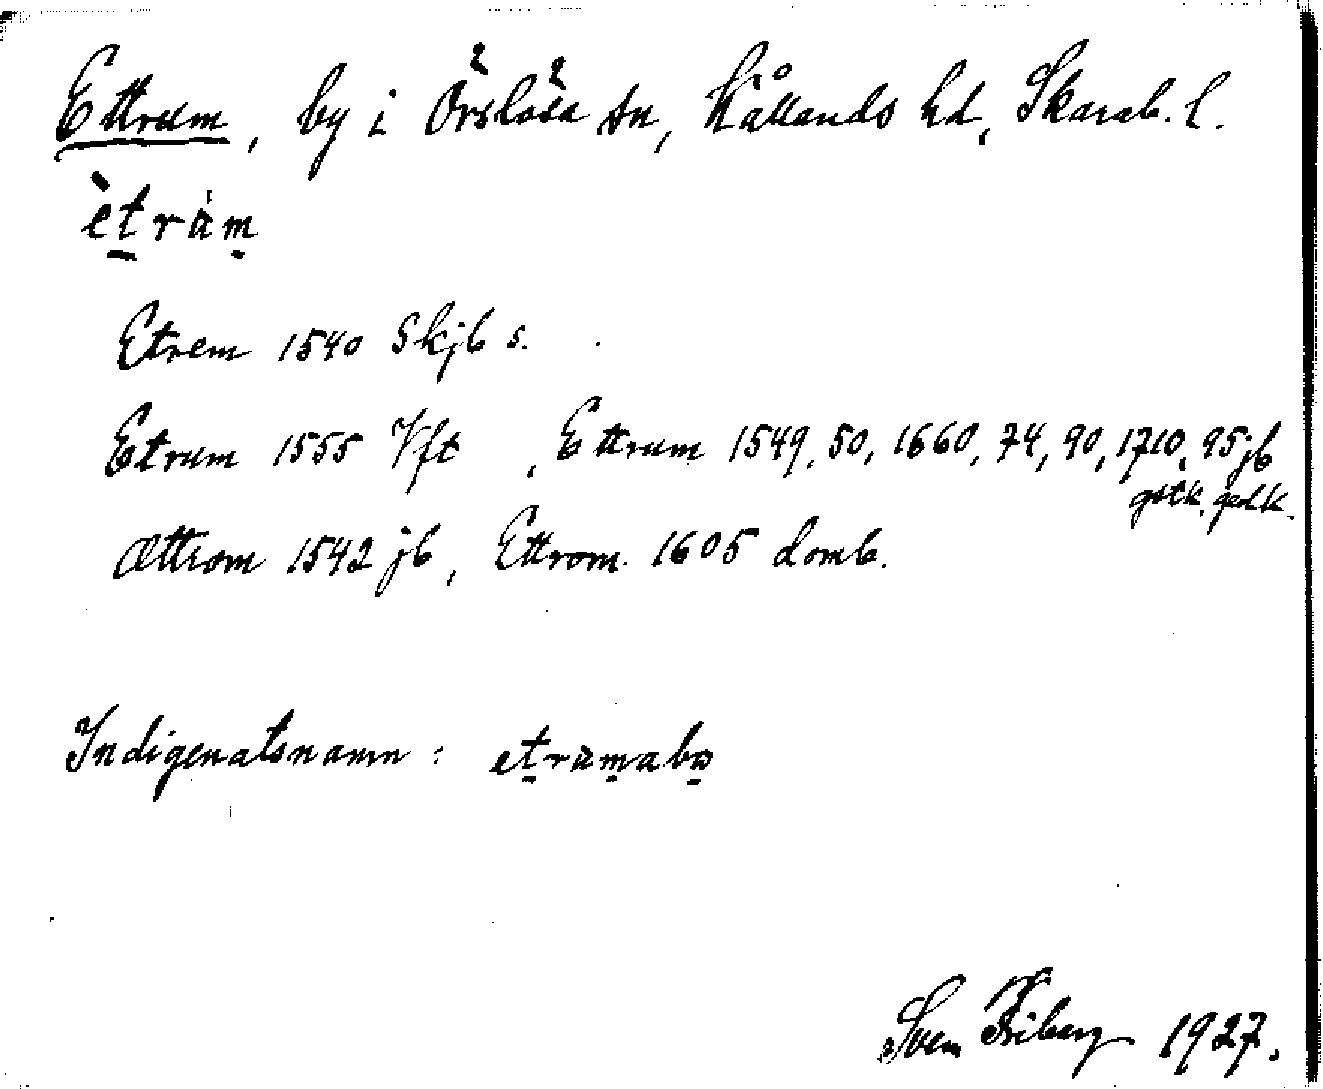 Ettrum, by i Örslösa sn, Kållands hd, Skarab. l.
ètràm
Etrem 1540 Skjb s.
Etrum 1555 Vft, Ettrum 1549, 50, 1660, 74, 90, 1710, 95 jb
Ættrom 1542 jb, Ettrom 1605 domb.
Indigenatsnamn: etramabo
Sven Friberg 1927.